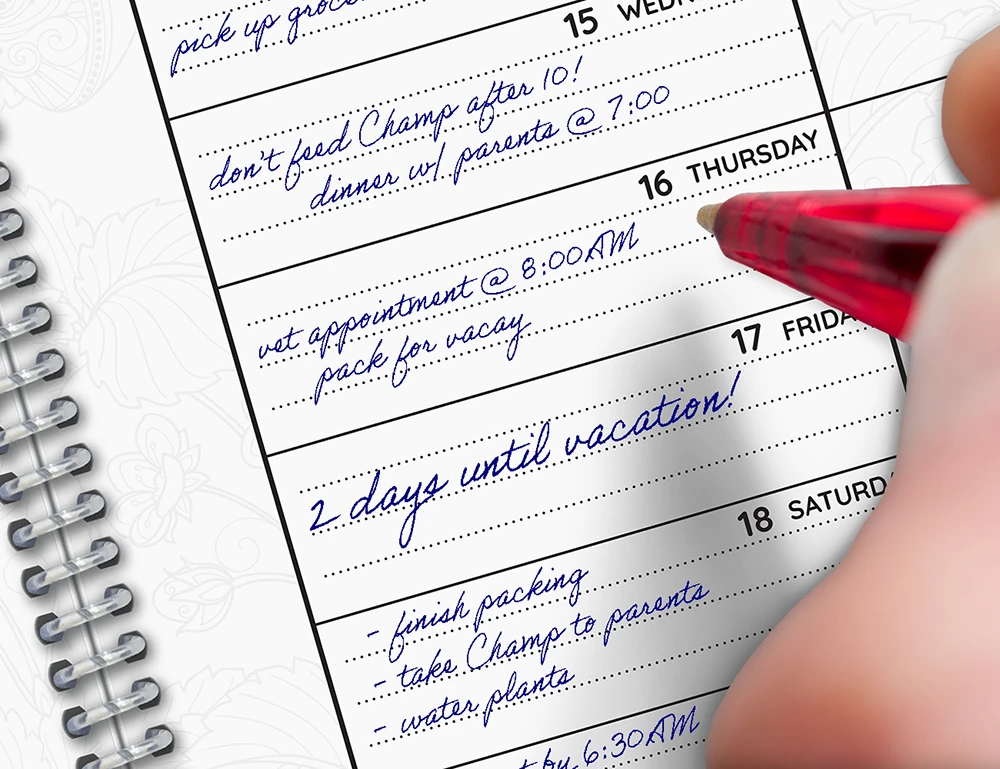 pick up
15
don't feed Champ after 10!
dinner w/ parents @ 7:00
16 THURSDAY
vet appointment @ 8:00AM
pack for vacay
17
2 days until vacation!
18
- finish packing
- take Champ to parents
- water plants
by 6:30AM